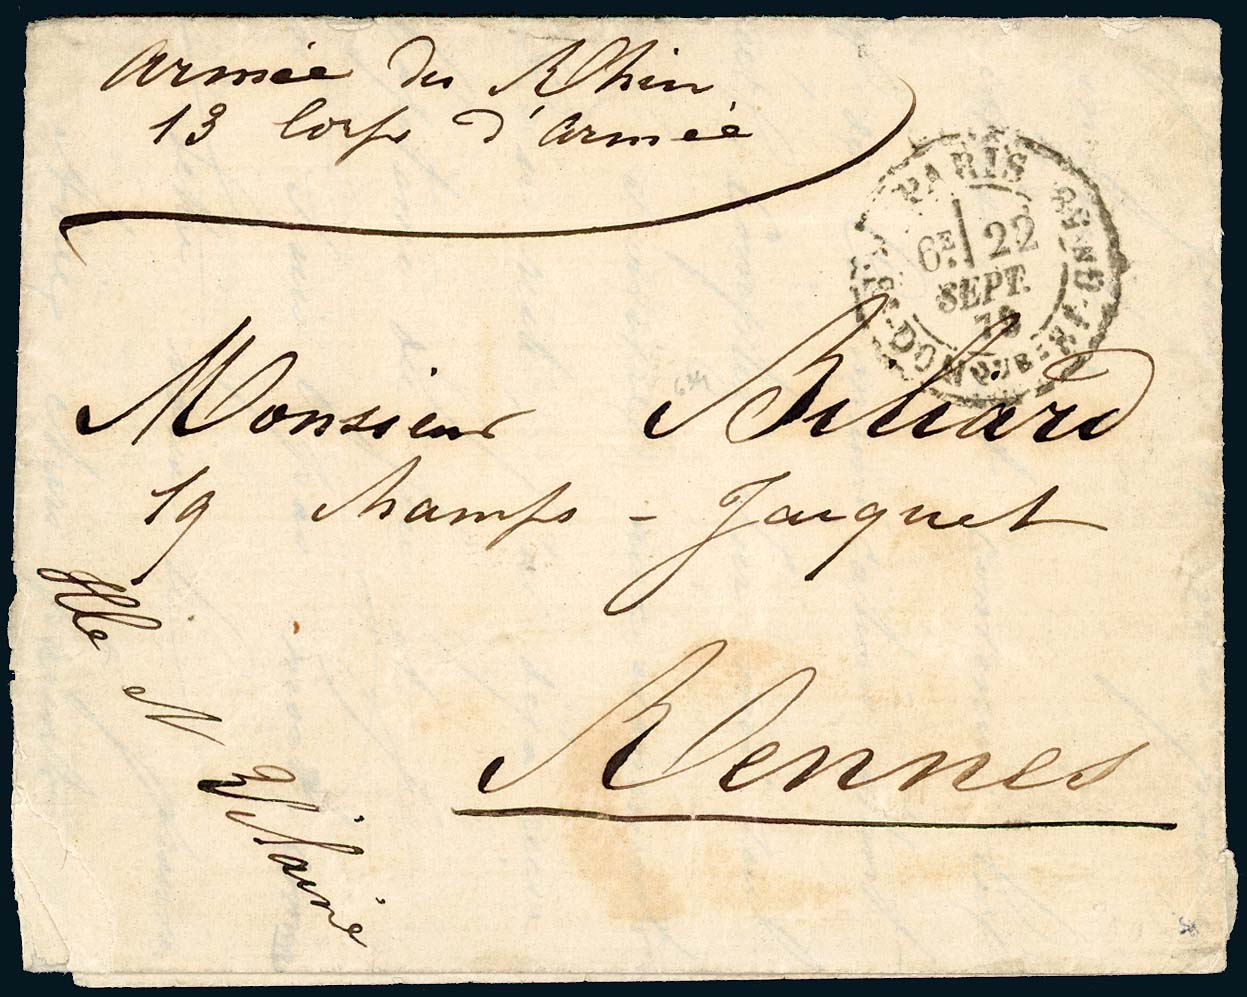 Armée du Rhin
13 Corps d'Armée
PARIS
6E 22
SEPT.
70
Monsieur Billiard
19 Champs - Jacquet
Rennes
Ille et Vilaine